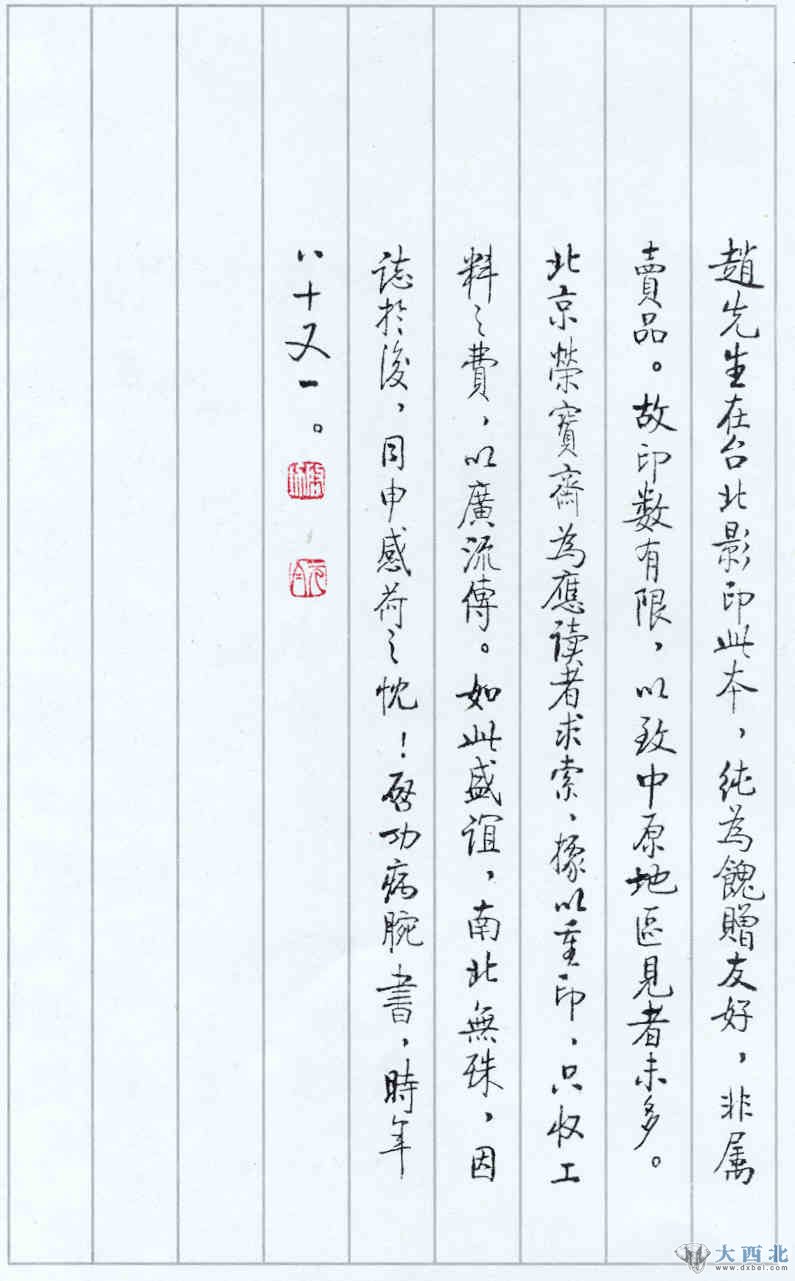 趙先生在台北影印此本，純為餽贈友好，非属
賣品。故印数有限，以致中原地區見者未多。
北京榮寶齋為應读者求索，據以重印，只收工
料之費，以廣流傳。如此盛誼，南北無殊，因
誌於後，用申感荷之忱！啓功病腕書，時年
八十又一。
大西北
www.dxbei.com